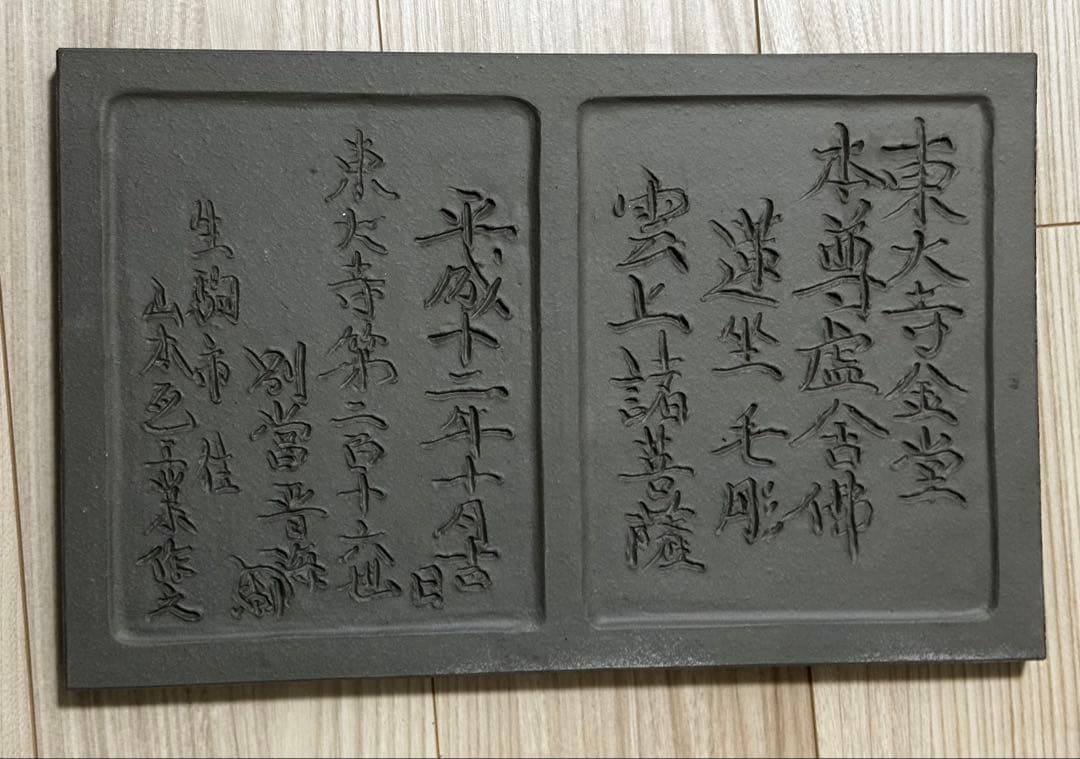 東大寺金堂
本尊盧舍佛
蓮坐毛彫
雲上諸菩薩
平成十二年十月吉日
東大寺第二百十六世
別當晋海
生駒市 住
山本瓦工業作之